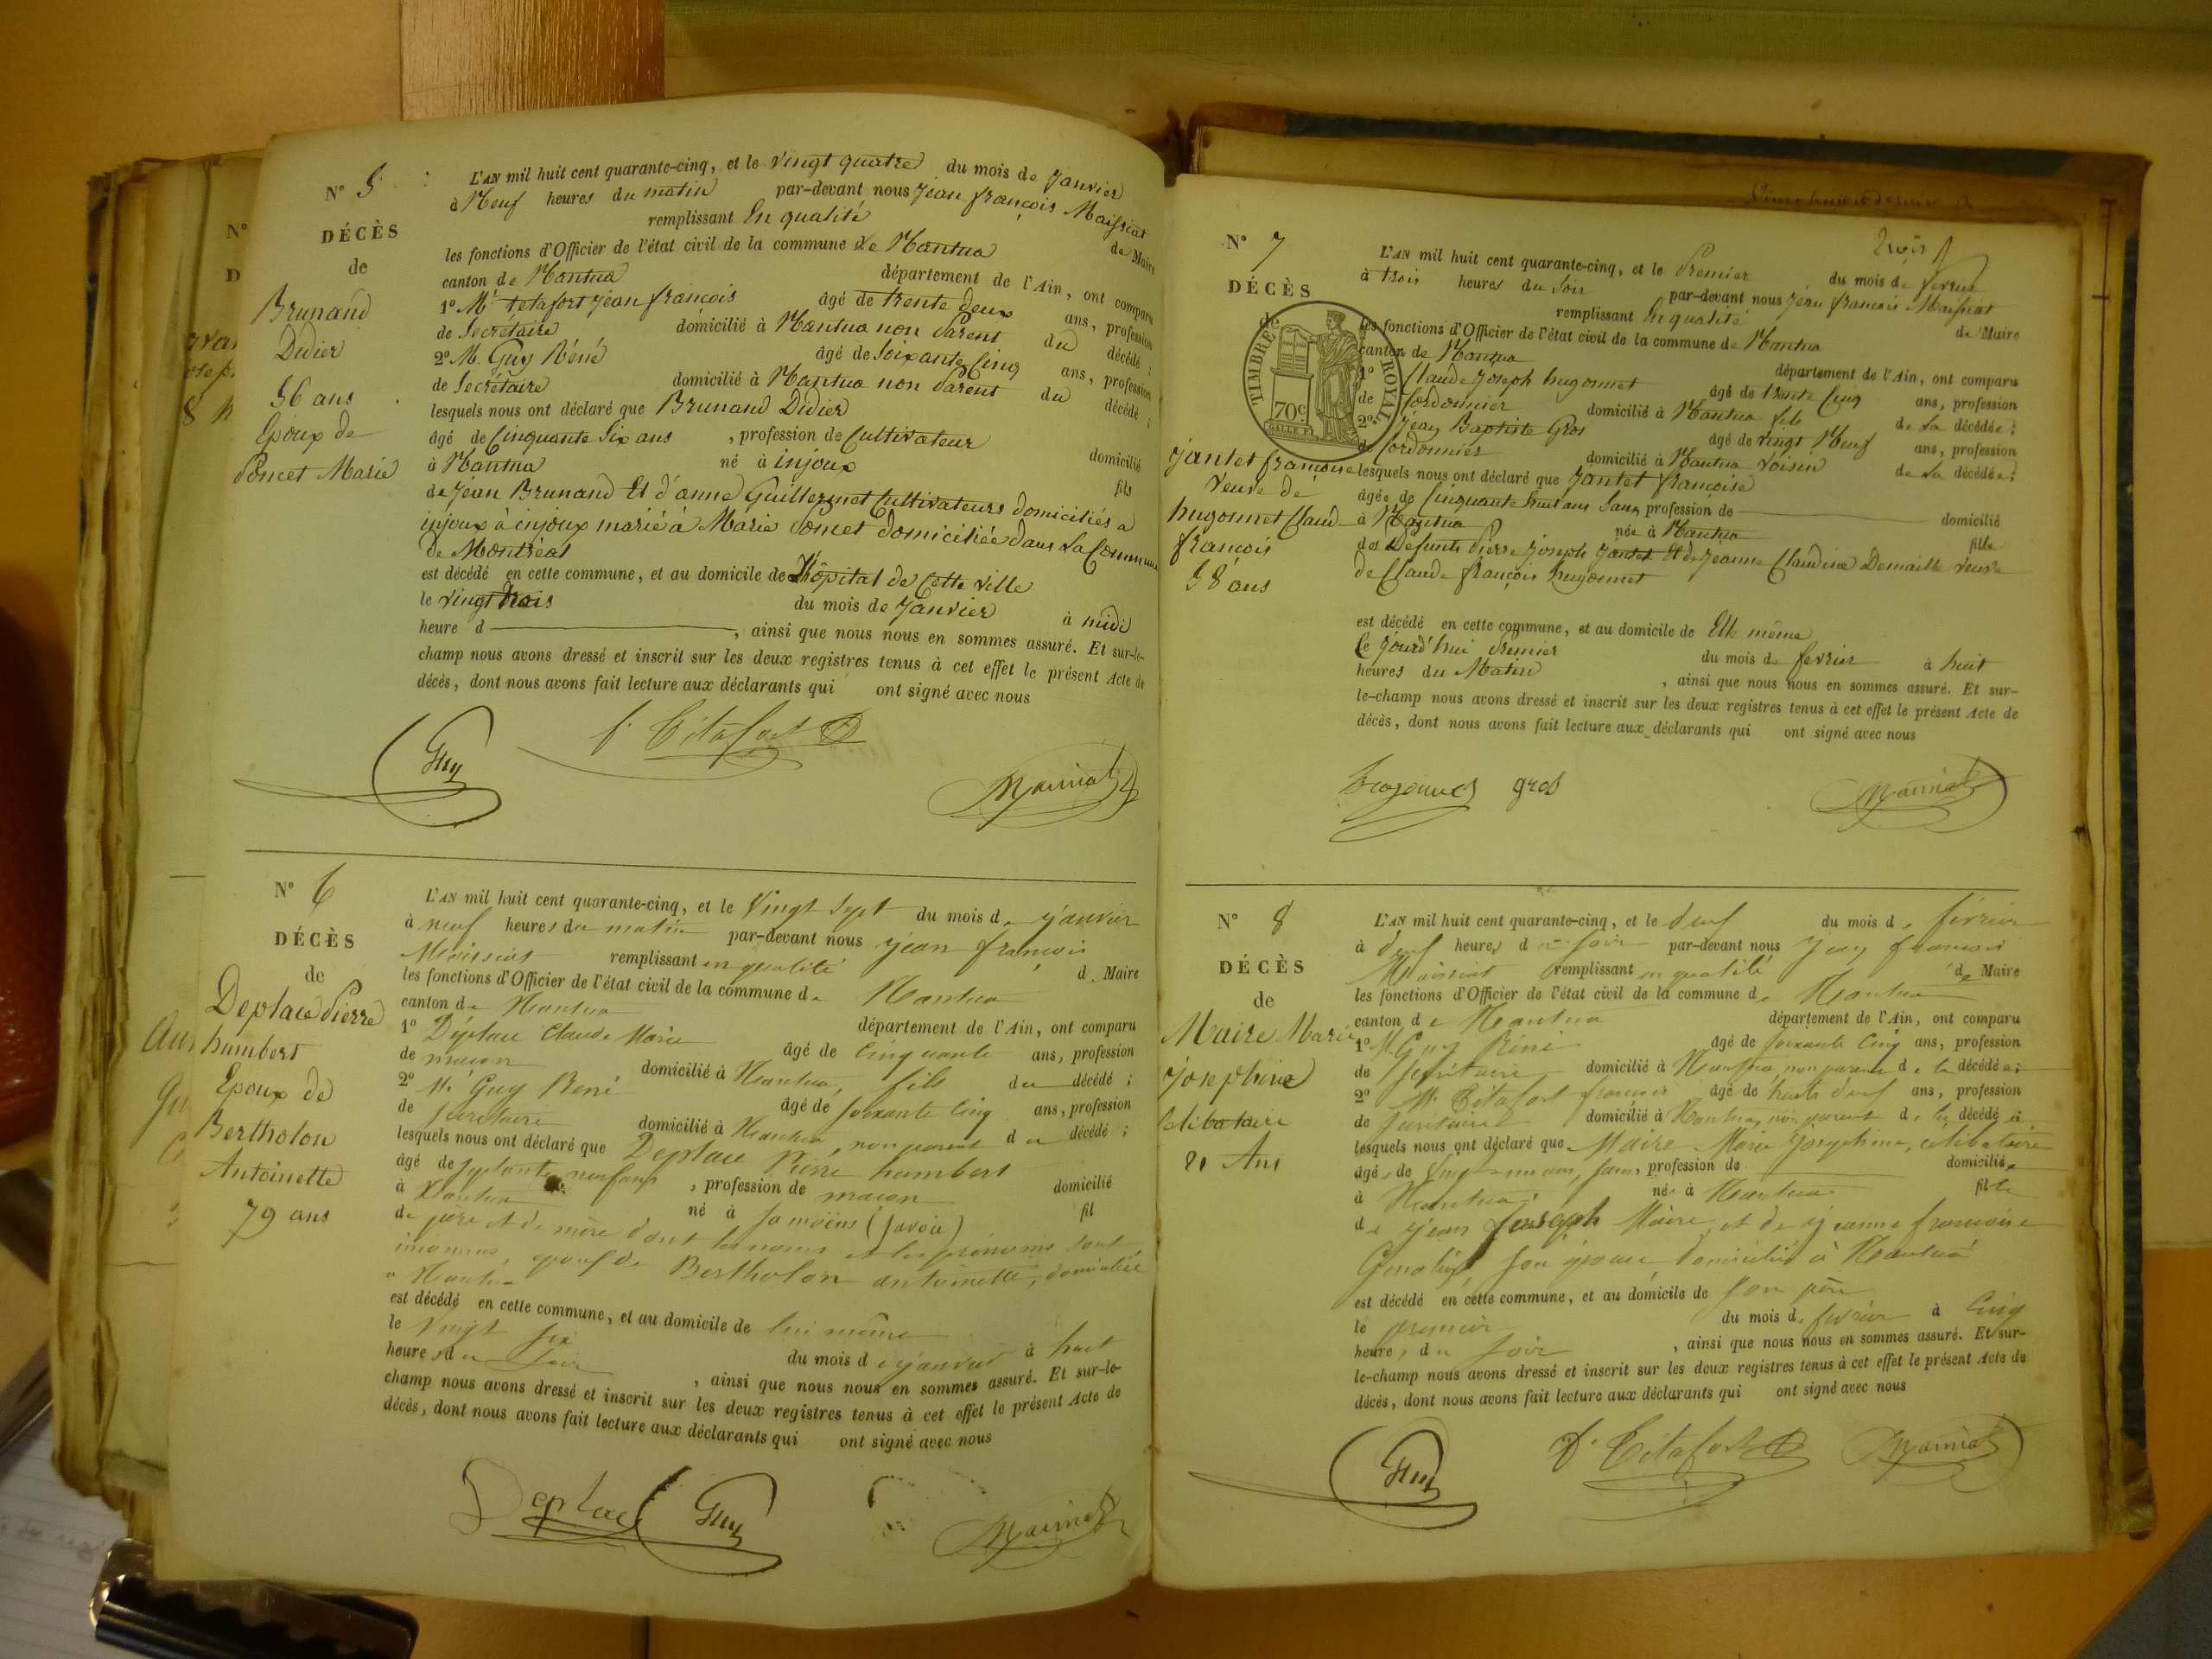 N° 5
DÉCÈS
de
Brunand
Didier
56 ans
Epoux de
Poncet Marie
L'AN mil huit cent quarante-cinq, et le vingt quatre du mois de Janvier
à Neuf heures du matin par-devant nous Jean françois Maissiat
remplissant En qualité de Maire
les fonctions d'Officier de l'état civil de la commune de Nantua
canton de Nantua département de l'Ain, ont comparu
1° Mr tetafort Jean françois âgé de trente deux ans, profession
de Secrétaire domicilié à Nantua non Parent du décédé ;
2° M. Guy Réné âgé de Soixante Cinq ans, profession
de Secrétaire domicilié à Nantua non Parent du décédé ;
lesquels nous ont déclaré que Brunand Didier
âgé de Cinquante Six ans , profession de Cultivateur domicilié
à Nantua né à injoux fils
de Jean Brunand Et d'anne Guillermet Cultivateurs domiciliés a
injoux à injoux marié à Marie Poncet domiciliée dans La Commune
de Montréal
est décédé en cette commune, et au domicile de L'hôpital de Cette ville
le vingt trois du mois de Janvier à midi
heure d , ainsi que nous nous en sommes assuré. Et sur-le-
champ nous avons dressé et inscrit sur les deux registres tenus à cet effet le présent Acte de
décès, dont nous avons fait lecture aux déclarants qui ont signé avec nous
Guy f. Tétafort Maissiat
N° 6
DÉCÈS
de
Deplace Pierre
humbert
Epoux de
Bertholon
Antoinette
79 ans
L'AN mil huit cent quarante-cinq, et le Vingt Sept du mois de janvier
à neuf heures du matin par-devant nous jean françois
Maissiat remplissant en qualité d Maire
les fonctions d'Officier de l'état civil de la commune de Nantua
canton de Nantua département de l'Ain, ont comparu
1° Déplace Claude Marie âgé de Cinquante ans, profession
de maçon domicilié à Nantua, fils du décédé ;
2° Mr Guy René âgé de soixante Cinq ans, profession
de secrétaire domicilié à Nantua, non parent du décédé ;
lesquels nous ont déclaré que Deplace Pierre humbert
âgé de septante neuf ans , profession de maçon domicilié
à Nantua né à Samoëns (Savoie) fil
de père et de mère dont les noms et les prénoms sont
inconnus, époux de Bertholon antoinette, domiciliée
a Nantua
est décédé en cette commune, et au domicile de lui même
le Vingt six du mois de janvier à huit
heures du soir , ainsi que nous nous en sommes assuré. Et sur-le-
champ nous avons dressé et inscrit sur les deux registres tenus à cet effet le présent Acte de
décès, dont nous avons fait lecture aux déclarants qui ont signé avec nous
Deplace Guy Maissiat
trois
N° 7
DÉCÈS
de
TIMBRE ROYAL
70c
Jantet françoise
Veuve de
hugonnet Claud
françois
58 ans
L'AN mil huit cent quarante-cinq, et le Premier du mois de fevrier
à trois heures du Soir par-devant nous Jean françois Maissiat
remplissant En qualité de Maire
les fonctions d'Officier de l'état civil de la commune de Nantua
canton de Nantua département de l'Ain, ont comparu
1° Claude Joseph hugonnet âgé de trente Cinq ans, profession
de Cordonnier domicilié à Nantua fils de La décédée ;
2° Jean Baptiste Gros âgé de vingt Neuf ans, profession
de Cordonnier domicilié à Nantua Voisin de La décédée ;
lesquels nous ont déclaré que Jantet françoise
âgée de Cinquante huit ans Sans profession de domicilié
à Nantua née à Nantua fille
des Defunts Pierre Joseph Jantet Et de Jeanne Claudine Demaille veuve
de Claude françois hugonnet
est décédé en cette commune, et au domicile de Elle même
le Jourd'hui Premier du mois de fevrier à huit
heures du Matin , ainsi que nous nous en sommes assuré. Et sur-
le-champ nous avons dressé et inscrit sur les deux registres tenus à cet effet le présent Acte de
décès, dont nous avons fait lecture aux déclarants qui ont signé avec nous
hugonnet gros Maissiat
N° 8
DÉCÈS
de
Maire Marie
Josephine
Celibataire
21 Ans
L'AN mil huit cent quarante-cinq, et le deux du mois de février
à deux heures du soir par-devant nous Jean françois
Maissiat remplissant en qualité de Maire
les fonctions d'Officier de l'état civil de la commune de Nantua
canton de Nantua département de l'Ain, ont comparu
1° M. Guy Réné âgé de soixante Cinq ans, profession
de secrétaire domicilié à Nantua, non parent de la décédée ;
2° Mr Tétafort françois âgé de trente deux ans, profession
de secrétaire domicilié à Nantua, non parent de la décédée
lesquels nous ont déclaré que Maire Marie Josephine, célibataire
âgée de vingt-un ans, sans profession de domiciliée
à Nantua, née à Nantua fille
de jean Joseph Maire, et de jeanne françoise
son épouse domiciliés à Nantua
est décédé en cette commune, et au domicile de son père
le premier du mois de février à Cinq
heures du soir , ainsi que nous nous en sommes assuré. Et sur-
le-champ nous avons dressé et inscrit sur les deux registres tenus à cet effet le présent Acte de
décès, dont nous avons fait lecture aux déclarants qui ont signé avec nous
Guy f. Tétafort Maissiat